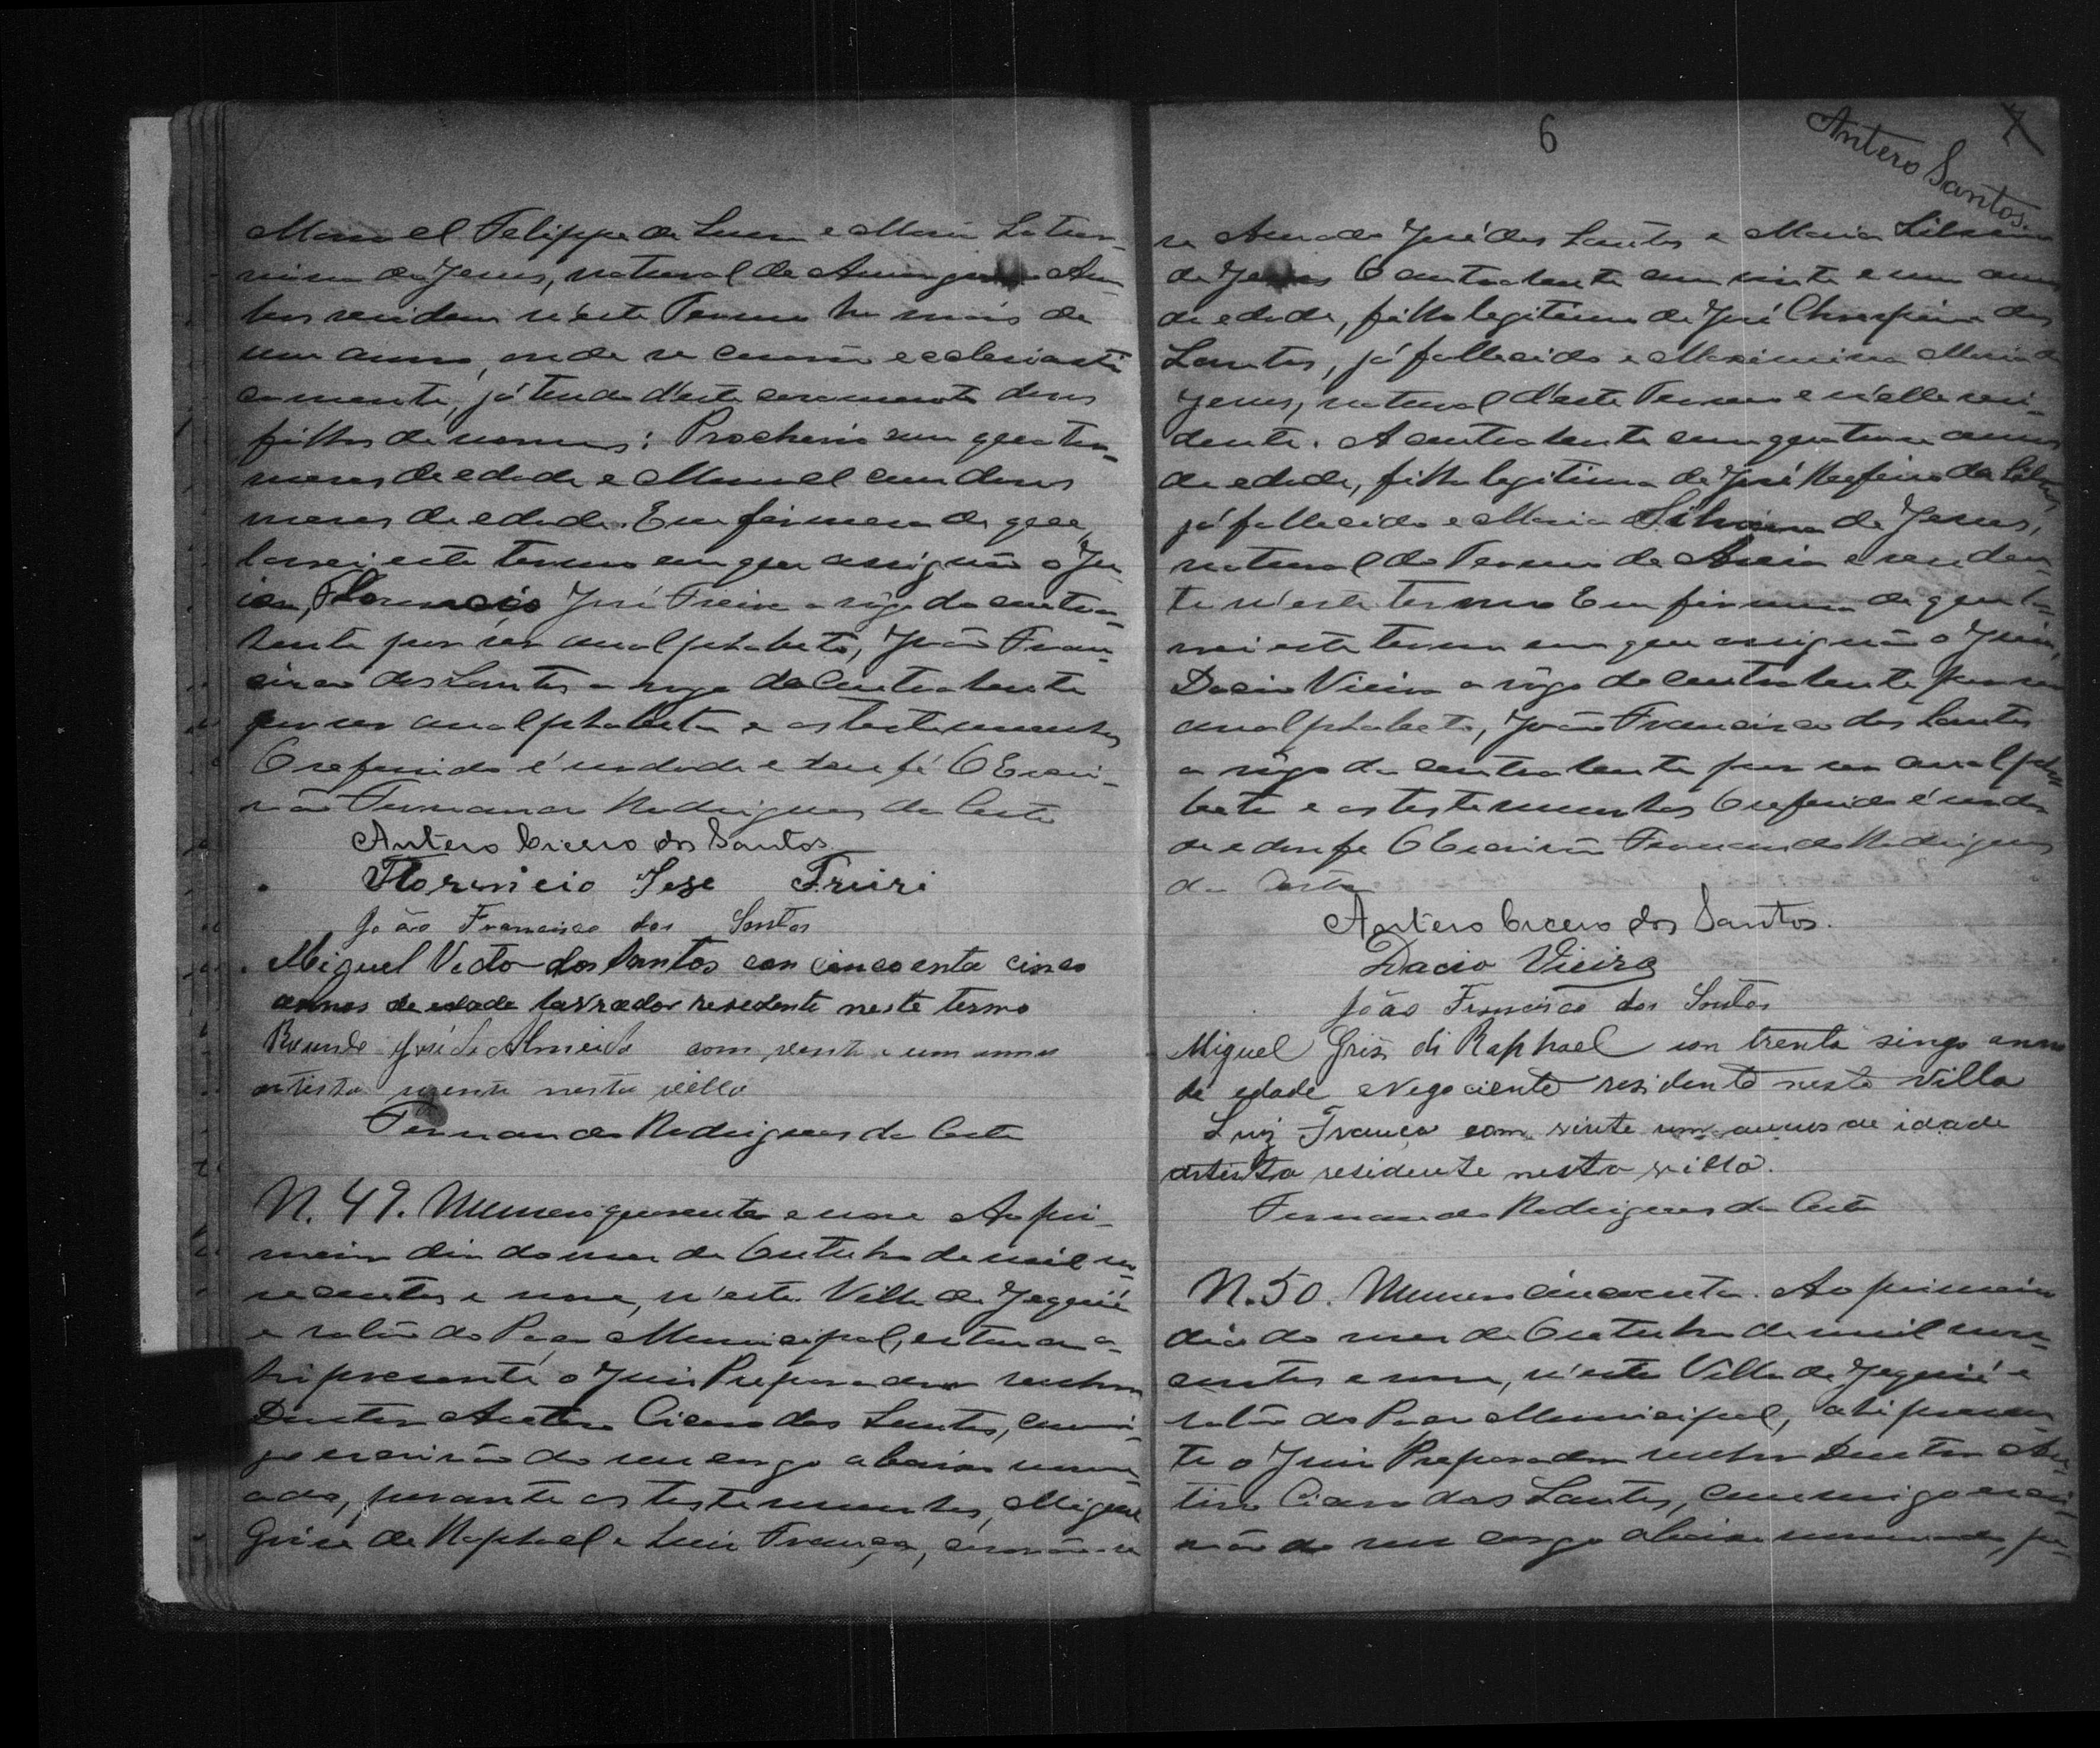 Manoel Felippe de Lima e Maria Satur-
nina de Jesus, natural de
bos residem n'este Termo ha mais de
um anno, onde se casarão ecclesiasti
camente, já tendo d'este casamento dous
filhos de nomes: com quatro
meses de edade e Manoel com dous
meses de edade. Em firmesa do que,
lavrei este termo em que assignão o Ju-
iz, Florencio José Freire a rôgo do contra-
hente por ser analphabeto, João Fran-
cisco dos Santos a rogo da contrahente
por ser analphabeta e as testemunhas
O referido é verdade e dou fé O Escri-
vão Fernando Rodrigues da Costa
Antero Cicero dos Santos.
Florencio Jose Freiri
João Francisco dos Santos
Miguel Victo dos Santos con cincoenta cinco
annos de edade lavrador resedente neste termo
José de Almeida com vente e um annos
artista nesta villa
Fernando Rodrigues da Costa
N. 49. Numero quarenta e nove Ao pri-
meiro dia do mes de Outubro de mil no-
vecentos e nove, n'esta Villa de Jequié
e salão do Paço Municipal, estando a-
hi presente o Juiz Preparador senhor
Doutor Antero Cicero dos Santos, comi-
go escrivão do seu cargo abaixo nome-
ado, perante as testemunhas, Miguel
Grisi de Raphael e Luiz França, casarão-se
6
7
Antero Santos.
se Amado José dos Santos e Maria Silvina
de Jesus O contrahente com vinte e um annos
de edade, filho legitimo de José Chrispim dos
Santos, já fallecido e Maximina Maria de
Jesus, natural d'este Termo e n'elle resi-
dente. A contrahente com quatorze annos
de edade, filha legitima de José da Silva,
já fallecido e Maria Silvina de Jesus,
natural do Termo de Areia e residen-
te n'este termo Em firmesa do que la-
vrei este termo em que assignão o Juiz,
Dacio Vieira a rôgo do contrahente por ser
analphabeto, João Francisco dos Santos
a rôgo da contrahente por ser analpha-
beta e as testemunhas O referido é verda-
de e dou fe O Escrivão Fernando Rodrigues
da Costa
Antero Cicero dos Santos.
Dacio Vieira
João Francisco dos Santos
Miguel Grisi di Raphael con trenta singo anno
de edade Negociente residente neste Villa
Luiz França com vinte um annos de idade
artista residente nesta villa.
Fernando Rodrigues da Costa
N. 50. Numero cincoenta. Ao primeiro
dia do mes de Outubro de mil nove-
centos e nove, n'esta Villa de Jequié e
salão do Paço Municipal, ahi presen-
te o Juiz Preparador senhor Doutor An-
tero Cicero dos Santos, commigo escri-
vão do seu cargo abaixo nomeado, pe-